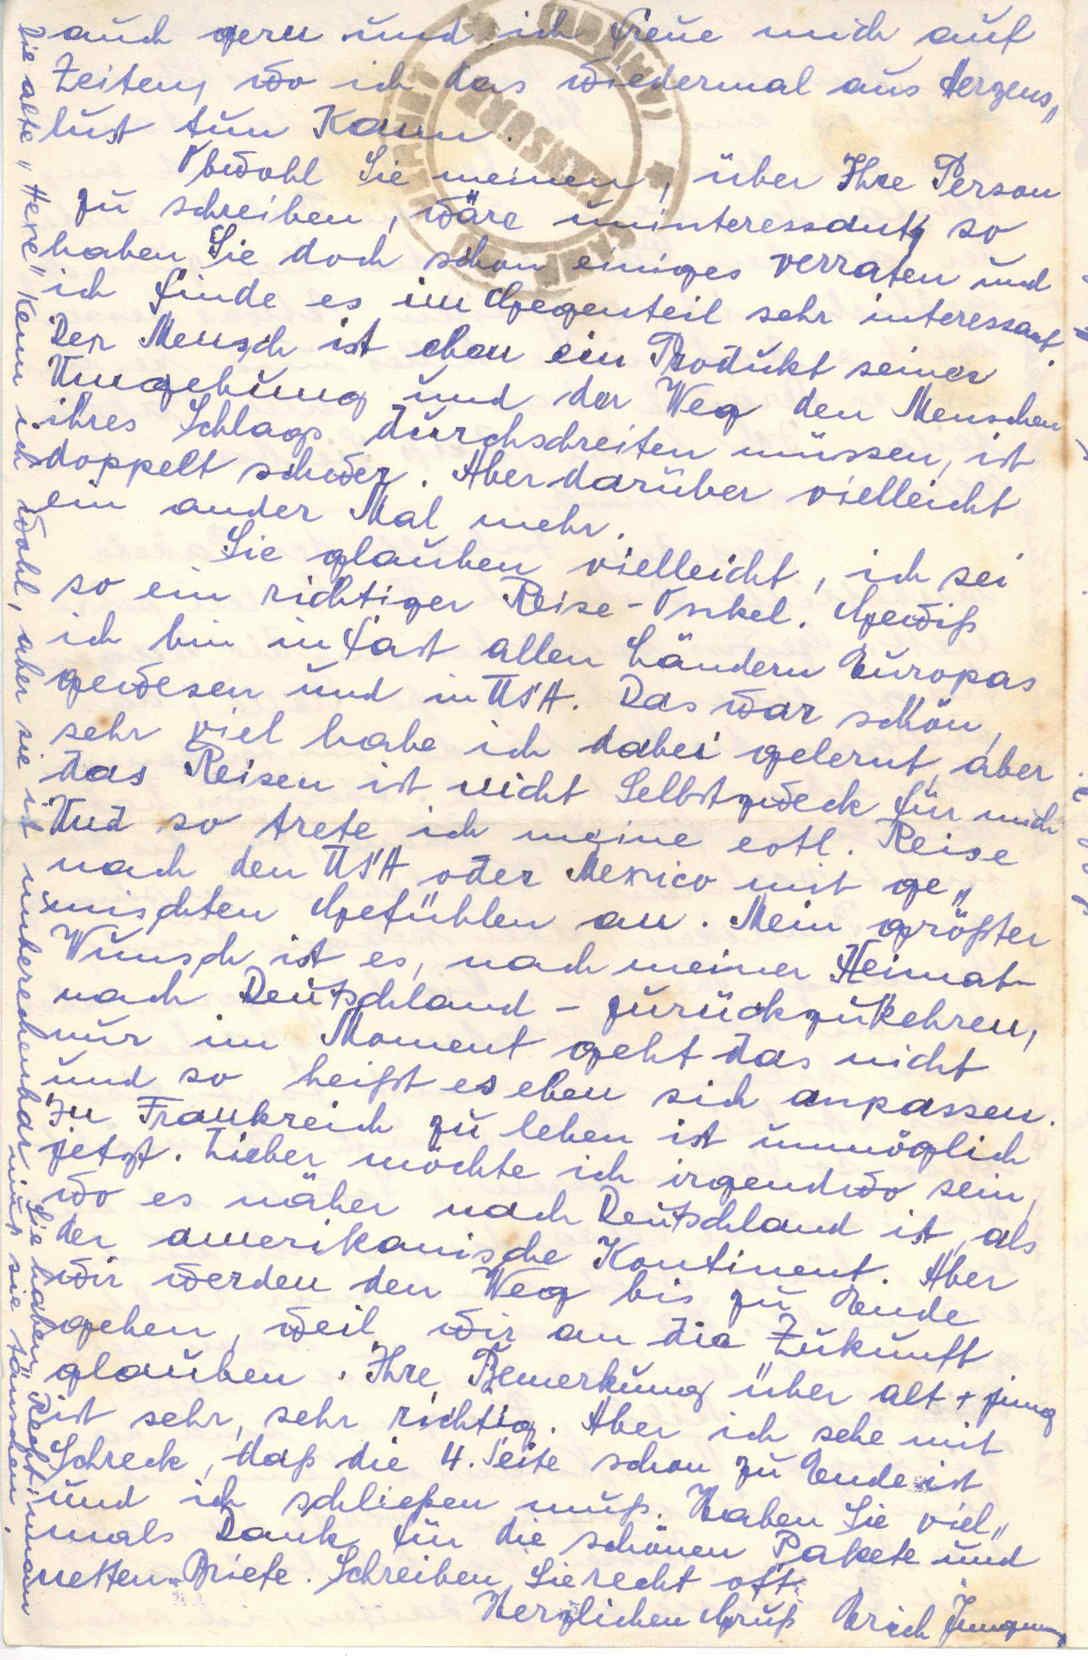 auch gern und ich freue mich auf
Zeiten, wo ich das wiedermal aus Herzens„
lust tun kann.
Obwohl Sie meinen, über Ihre Person
zu schreiben, wäre uninteressant, so
haben Sie doch schon einiges verraten und
ich finde es im Gegenteil sehr interessant.
Der Mensch ist eben ein Produkt seiner
Umgebung und der Weg den Menschen
ihres Schlags durchschreiten müssen, ist
doppelt schwer. Aber darüber vielleicht
ein ander Mal mehr.
Sie glauben vielleicht, ich sei
so ein richtiger Reise-Onkel. Gewiß
ich bin in fast allen Ländern Europas
gewesen und in USA. Das war schön,
sehr viel habe ich dabei gelernt, aber
das Reisen ist nicht Selbstzweck für mich
Und so trete ich meine evtl. Reise
nach den USA oder Mexico mit ge„
mischten Gefühlen an. Mein größter
Wunsch ist es, nach meiner Heimat-
nach Deutschland - zurückzukehren,
nur im Moment geht das nicht
und so heißt es eben sich anpassen.
In Frankreich zu leben ist unmöglich
jetzt. Lieber möchte ich irgendwo sein,
wo es näher nach Deutschland ist, als
der amerikanische Kontinent. Aber
wir werden den Weg bis zu Ende
gehen, weil wir an die Zukunft
glauben. Ihre Bemerkung über alt + jung
ist sehr, sehr richtig. Aber ich sehe mit
Schreck, daß die 4. Seite schon zu Ende ist
und ich schließen muß. Haben Sie viel„
mals Dank für die schönen Pakete und
netten Briefe. Schreiben Sie recht oft.
Herzlichen Gruß Erich Jungmann
Die alte „Hexe" kenn ich wohl, aber sie ist unberechenbar
Sie haben Recht: man
muß sie täuschen.
CENSURE